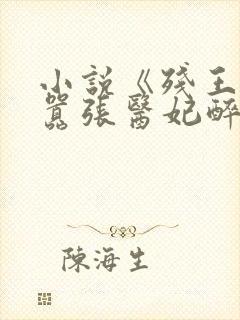 小説《殘王
囂張醫妃醉
陳海生